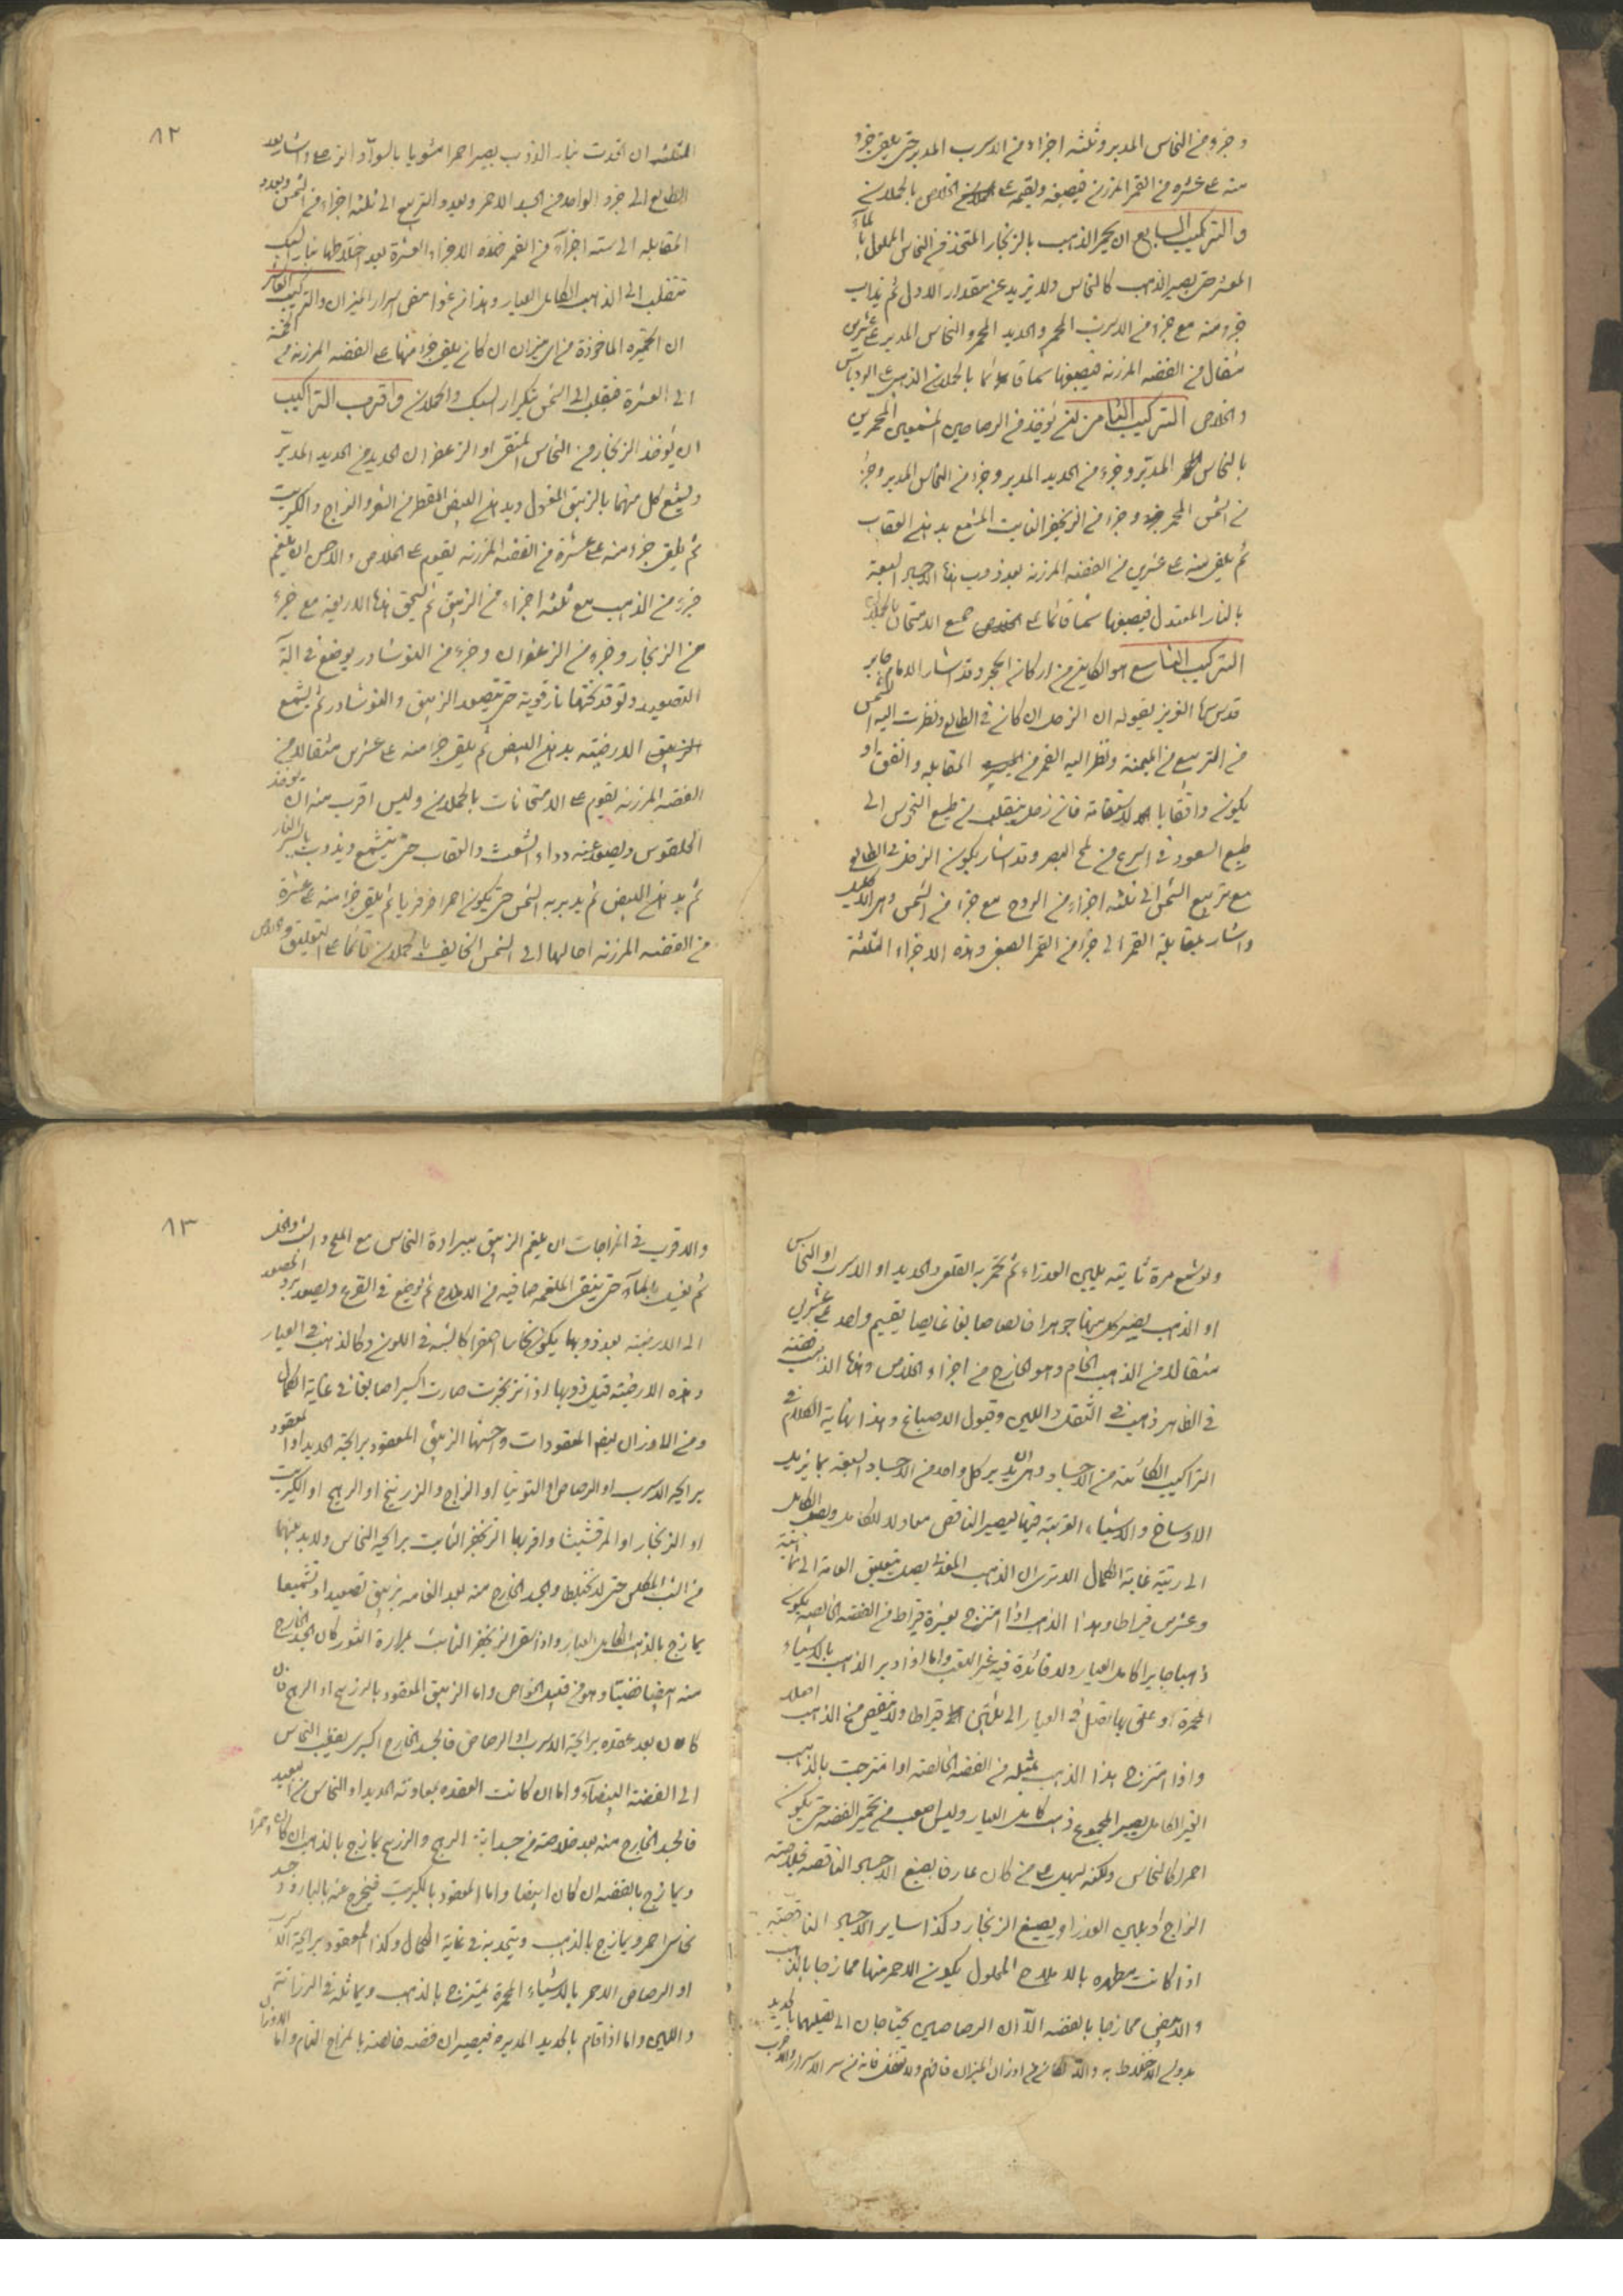 وجزء من النحاس المدبر وثلثه اجزاء من الاسرب المدبر حتى يلقى جزء
منه على عشرة من القمر المرزن فيصبغه ويقيمه على الخلاص بالحملان
والتركيب السابع ان يحمر الذهب بالزنجار المتخذ من النحاس المحلول بالماء
حتى يصير الذهب كالنحاس ولا تزيد عن مقدار الاول ثم يذاب
جزء منه مع جزء من الاسرب المحمر والحديد المحمر والنحاس المدبر على عشرين
مثقال من الفضه المرزنه فيصبغها شمسا قائما بالحملان الذهبى الروباس
والخلاص التركيب الثامن ان يؤخذ من الرصاصين المحمرين
بالنحاس المدبر وجزء من الحديد المدبر وجزء من النحاس المدبر وجزء
من الشمس المحمر وجزء من الزنجفر الثابت المشمع بدهن العقاب
ثم يلقى منه على عشرين من الفضه المرزنه بعد ذوب هذه الاجساد السبعة
بالنار المعتدل فيصبغها شمسا قائما على جميع الامتحان بالحملان
التركيب التاسع هو الكاين من اركان الحجر وقد اشار الامام جابر
قدس سره العزيز بقوله ان الزحل ان كان في الطالع ونظرت اليه الشمس
من التربيع من الميمنة ونظر اليه القمر من المقابله واتفق او
يكون واقفا بالاستقامة فان زحل ينقلب من طبع النحوس الى
طبع السعود في اسرع من لمح البصر وقد اشار بكون الزحل في الطالع
مع تربيع الشمس الى ثلثه اجزاء من الروح مع جزء من الشمس وهى الاكليل
واشار بمقابلة القمر الى جزء من القمر الصبغى وهذه الاجزاء الثلثة
٨٢
المثلثه ان اتحدت بنار الذوب يصير احمر مشوبا بالسواد الزحلى واشار بعد
الطالع الى جزء الواحد من الجسد الاحمر وبعدد التربيع الى ثلثه اجزاء من الشمس وبعدد
المقابله الى ستة اجزاء من القمر فهذه الاجزاء العشرة بعد اختلاطها بنار السبك
تنقلب الى الذهب الكامل العيار وهذا من غوامض اسرار الميزان والتركيب العاشر
ان الخميره الماخوذة من اى ميزان ان كان يلقى جزء منها على الفضه المرزنه من الخمسة
الى العشرة فينقلب الى الشمس بتكرار السبك والحملان واقرب التراكيب
ان يؤخذ الزنجار من النحاس المنقى او الزعفران الحديد من الحديد المدبر
ويشمع كل منهما بالزيبق المغزول وبدهن البيض المقطر من الشعر والزاج والكبريت
ثم يلقى جزء منه على عشرة من الفضه المرزنه يقوم على الخلاص والاحسن ان يلغم
جزء من الذهب مع ثلثه اجزاء من الزيبق ثم يسحق هذه الاربعة مع جزء
من الزنجار وجزء من الزعفران وجزء من النوشادر يوضع في آلة
التصعيد وتوقد تحتها نار قوية حتى يتصعد الزيبق والنوشادر ثم يشمع
الارضية بدهن البيض ثم يلقى جزء منه على عشرين مثقالا من
الفضه المرزنه يقوم على الامتحانات بالحملان وليس اقرب منه ان يؤخذ
القلقوس ويصعد عنه دواء الشعث والعقاب حتى يتشمع ويذوب بايسر النار
ثم بدهن البيض ثم يدبر به الشمس حتى يكون احمر فرفريا ثم يلقى جزء منه على عشرة
من الفضه المرزنه احالها الى الشمس الخايف بالحملان قائما على التعليق والخلاص
ولو شمع مرة ثانيه بلبن العذراء ثم تحمر به القلعى والحديد او الاسرب او النحاس
او الذهب يصير كل منها جوهرا خالصا صابغا غايصا يقيم واحد على عشرين
مثقالا من الذهب الخام وهو الخارج من اجزاء الخلاص وهذا الذهب فضة
في الظاهر ذهب في الثقل واللين وقبول الاصباغ وهذا نهاية الكلام في
التراكيب الكائنة من الاجساد وهى ان يدبر كل واحد من الاجساد السبعة بما يزيل
الاوساخ والاشياء الغريبة فيها ليصير الناقص معادلا للكامل ويصل الكامل
الى رتبة غاية الكمال الاترى ان الذهب المعدني يصل بتعليق العامة الى ثمانية
وعشرين قيراطا وهذا الذهب اذا امتزج بعشرة قيراط من الفضه الخالصه يكون
ذهبا جايزا كامل العيار ولا فائدة فيه غير التعب واما اذا دبر الذهب بالاشياء
المحمرة او علق بها تصل في العيار الى ثلثين قيراطا ولا ينقص من الذهب اصلا
واذا امتزج هذا الذهب بمثله من الفضة الخالصه اذا امتزجت بالذهب
الغير الكامل يصير المجموع ذهب كامل العيار وليس اصعب من تحمير الفضه حتى يكون
احمر كالنحاس ولكنه يسهل على من كان عارفا بصبغ الاجساد الناقصه بخلاصة
الزاج او بلبن العذراء ويصبغ الزنجار وكذا ساير الاجساد الناقصه
اذا كانت مطهره بالاملاح المحلول يكون الاحمر منها ممازجا بالذهب
والابيض ممازجا بالفضه الا ان الرصاصين يحتاجان الى تصليبهما بالحديد
بدون الاختلاط به والا من اوزان الميزان فافهم ولا تغفل فانه من سر الاسرار والاقرب
٨٣
والاقرب في المزاجات ان يلغم الزيبق ببرادة النحاس مع الملح والشب والخل
ثم يغسل بالماء حتى ينقى الملغمه صافيه من الاملاح ثم يوضع في القرع ويصعد ويرد المصعد
الى الارضية بعد ذوبها يكون نحاسا اصفر كالشبه في اللون وكالذهب في العيار
وهذه الارضية قبل ذوبها اذا تزنجرت صارت اكسيرا صابغا في غاية الكمال
ومن الاوزان ايضا المعقودات واحسنها الزيبق المعقود برايحة الحديد او المعقود
برايحة الاسرب او الرصاص او التوتيا او الزاج والزرنيخ او الرهج او الكبريت
او الزنجار او المرقشيثا واقربها الزنجفر الثابت برايحة النحاس ولابد بينهما
من الشب المكلس حتى لا يختلط والجسد الخارج منه بعد القامه بزيبق تصعيدا وتشميعا
يمازج بالذهب الكامل العيار واذا القى الزنجفر الثابت بمرارة الثور كان الجسد الخارج
منه ابيضا فضيا وهو من قليل الخواص واما الزيبق المعقود بالزرنيخ او الرهج فان
كان بعد عقده برايحة الاسرب او الرصاص فالجسد الخارج اكسير يقلب النحاس
الى الفضة البيضاء واما ان كانت العقده بمعاونة الحديد او النحاس من البعيد
فالجسد الخارج منه بعد خلاصته من جسدانية الرهج والزرنيخ يمازج بالذهب ان كان احمرا
ويمازج بالفضه ان كان ابيضا واما المعقود بالكبريت فيخرج عنه بالبارود جسد
نحاس احمر ويمازج بالذهب ويتحد به في غاية الكمال وكذا المعقود برايحة الاسرب
او الرصاص الاحمر بالاشياء المحمرة يمتزج بالذهب ويماثله في الرزانة
واللين واما اذا اقام بالحديد المدبره فيصيران فضه خالصة بالمزاج التام واما الاوزان